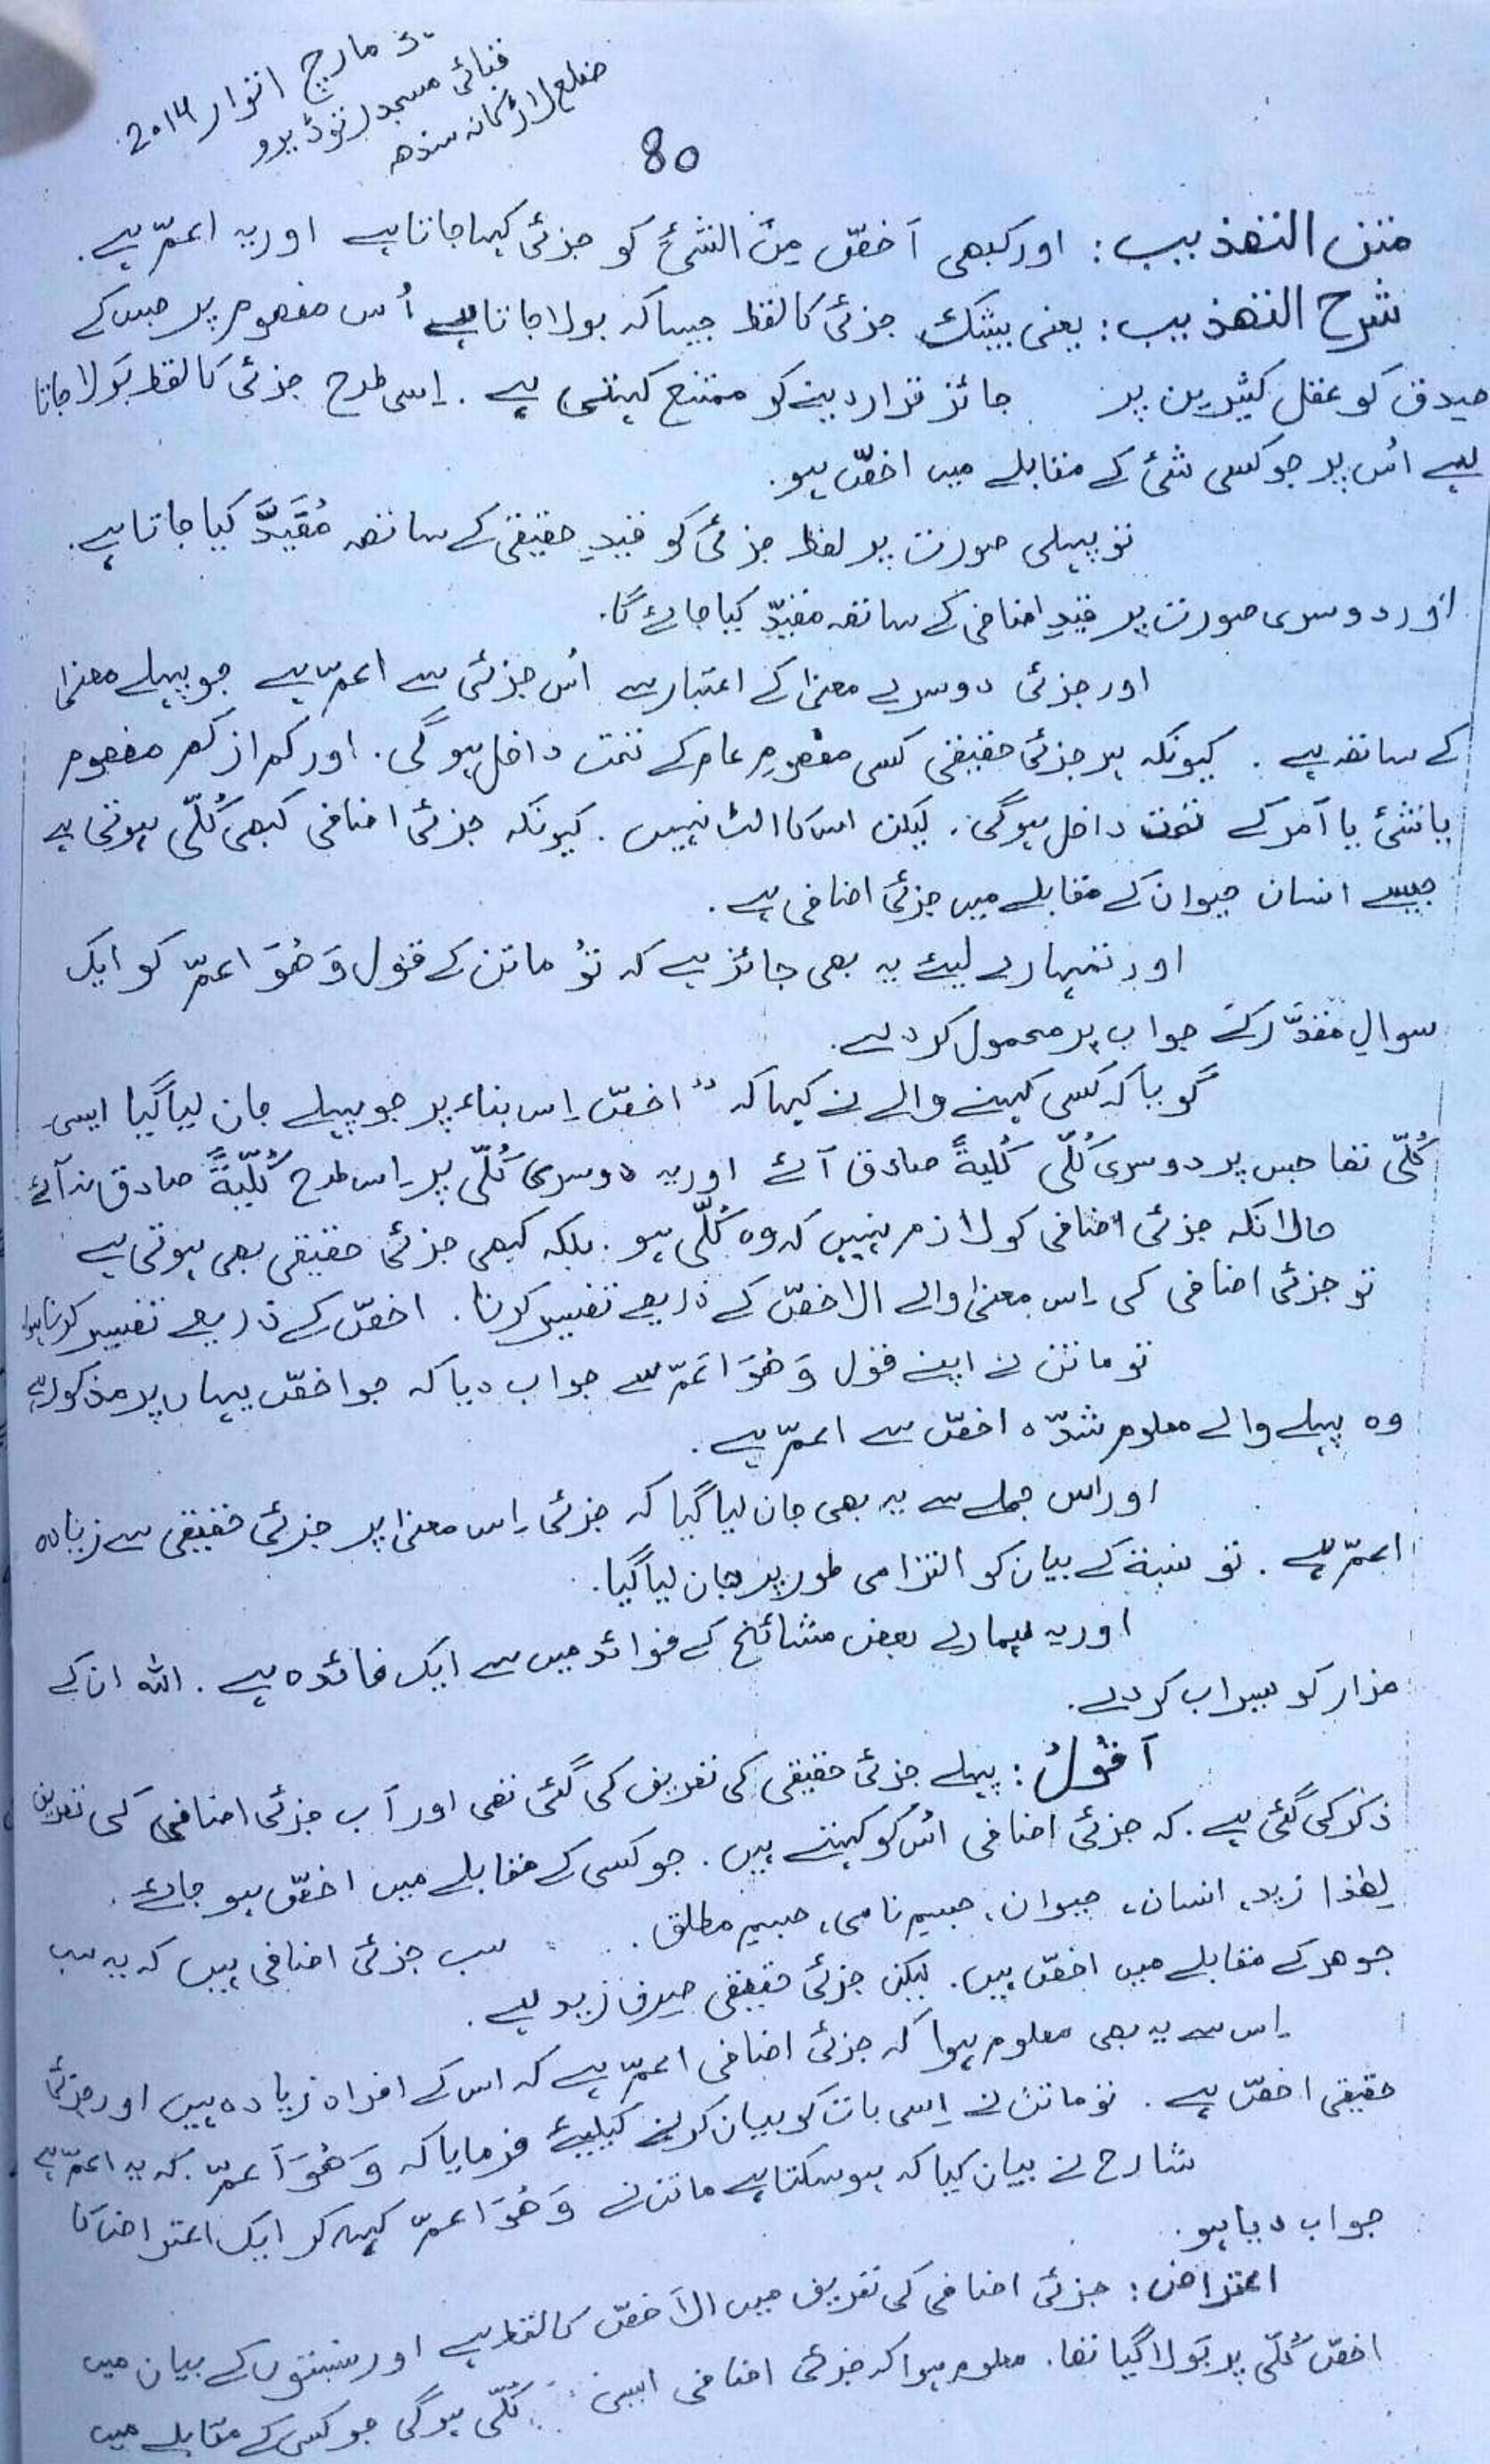 مارچ اتوار 2014
فنائی مسجد نوڈیرو
ضلع لاڑکانہ سندھ
80
متن التھذیب: اور کبھی اَخصّ مِنَ الشَّیْءِ کو جزئی کہا جاتا ہے اور یہ اعمّ ہے.
شرح التھذیب: یعنی بیشک جزئی کا لفظ جیسا کہ بولا جاتا ہے اُس مفھوم پر جس کے
صِدق کو عقل کثیرین پر جائز قرار دینے کو ممتنع کہتی ہے. اِسی طرح جزئی کا لفظ بَولا جاتا
ہے اُس پر جو کسی شئ کے مقابلے میں اخصّ ہو.
تو پہلی صورت پر لفظ جزئی کو قیدِ حقیقی کے ساتھ مُقَیَّدْ کیا جاتا ہے.
اور دوسری صورت پر قیدِ اضافی کے ساتھ مقیّد کیا جائے گا.
اور جزئی دوسرے معنیٰ کے اعتبار سے اُس جزئی سے اعمّ ہے جو پہلے معنیٰ
کے ساتھ ہے. کیونکہ ہر جزئی حقیقی کسی مفھومِ عام کے تحت داخل ہوگی. اور کم از کم مفھوم
یا شئ یا اَمر کے تحت داخل ہوگی. لیکن اس کا الٹ نہیں. کیونکہ جزئی اضافی کبھی کُلّی ہوتی ہے
جیسے انسان حیوان کے مقابلے میں جزئی اضافی ہے.
اور تمہارے لیئے یہ بھی جائز ہے کہ تُو ماتن کے قول وَھُوَ اعمّ کو ایک
سوالِ مقدَّر کے جواب پر محمول کر دے.
گویا کہ کسی کہنے والے نے کہا کہ " اخصّ اِس بناء پر جو پہلے جان لیا گیا ایسی
کُلّی تھا جس پر دوسری کُلّی کُلیةً صادق آئے اور یہ دوسری کُلّی پر اِس طرح کُلّیةً صادق نہ آئے
حالانکہ جزئی اضافی کو لازم نہیں کہ وہ کُلّی ہو. بلکہ کبھی جزئی حقیقی بھی ہوتی ہے
تو جزئی اضافی کی اِس معنیٰ والے الاخصّ کے ذریعے تفسیر کرنا. اخصّ کے ذریعے تفسیر کرنا ہوا
تو ماتن نے اپنے قول وَھُوَ اَعَمّ سے جواب دیا کہ جو اخصّ یہاں پر مذکور ہے
وہ پہلے والے معلوم شدّہ اخصّ سے اعمّ ہے.
اور اس جملے سے یہ بھی جان لیا گیا کہ جزئی اِس معنیٰ پر جزئی حقیقی سے زیادہ
اعمّ ہے. تو نسبة کے بیان کو التزامی طور پر جان لیا گیا.
اور یہ ہمارے بعض مشائخ کے فوائد میں سے ایک فائدہ ہے. اللہ ان کے
مزار کو سیراب کر دے.
اَقُوْلُ: پہلے جزئی حقیقی کی تعریف کی گئی تھی اور اَب جزئی اضافی کی تعریف
ذکر کی گئی ہے. کہ جزئی اضافی اُس کو کہتے ہیں. جو کسی کے مقابلے میں اخصّ ہو جائے.
لِھٰذا زید، انسان، حیوان، جسیم نامی، جسیم مطلق. سب جزئی اضافی ہیں کہ یہ سب
جوھر کے مقابلے میں اخصّ ہیں. لیکن جزئی حقیقی صِرف زید ہے.
اِس سے یہ بھی معلوم ہوا کہ جزئی اضافی اعمّ ہے کہ اس کے افراد زیادہ ہیں اور جزئی
حقیقی اخصّ ہے. تو ماتن نے اِسی بات کو بیان کرنے کیلیئے فرمایا کہ وَھُوَ اَعمّ. کہ یہ اعمّ ہے
شارح نے بیان کیا کہ ہو سکتا ہے ماتن نے وَھُوَ اعمّ کہہ کر ایک اعتراض کا
جواب دیا ہو.
اعتراض: جزئی اضافی کی تعریف میں الاَخصّ کا لفظ ہے اور نسبتوں کے بیان میں
اخصّ کُلّی پر بَولا گیا تھا. معلوم ہوا کہ جزئی اضافی ایسی کُلّی ہوگی جو کسی کے مقابلے میں